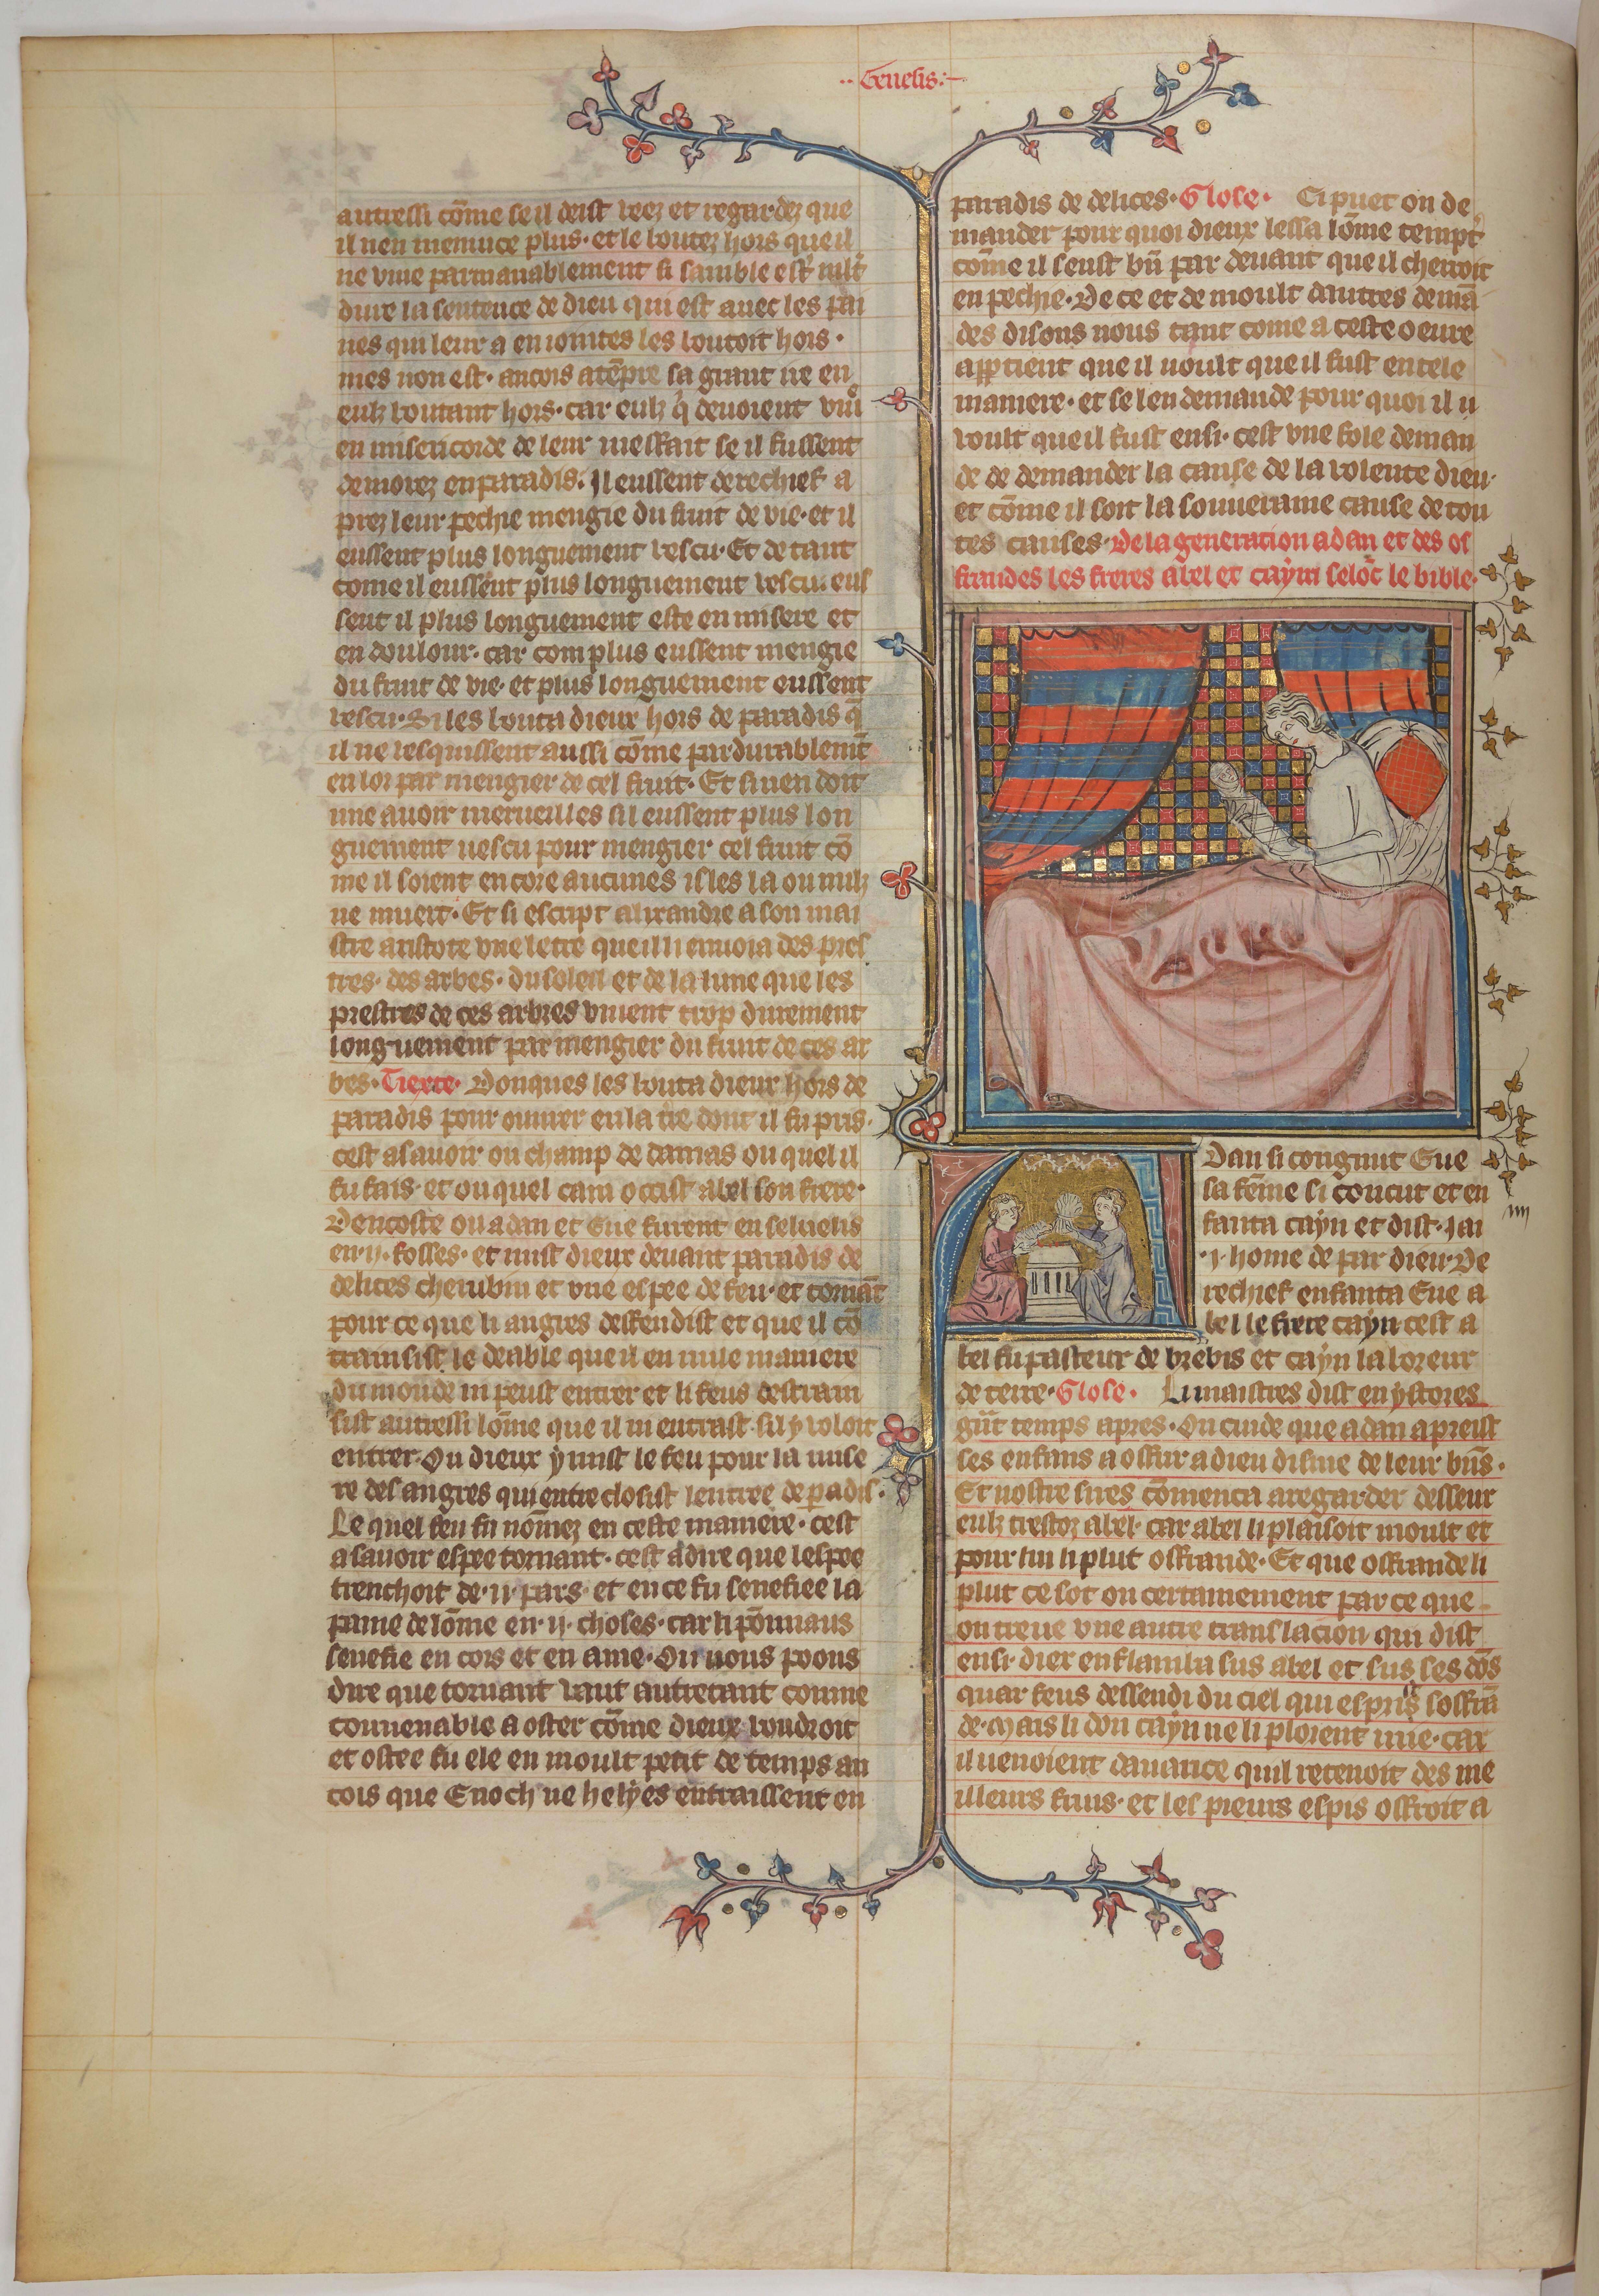 Genesis
autressi cōme se il deist veez et regardez que
il nen meniuce plus · et le boutez hors que il
ne viue parmanablement si samble estr̄ mlt̄
dure la sentence de dieu qui est auec les pai
nes qui leur a en iointes les boutoit hors ·
mes non est · ancois atēpre sa grant ire en
eulz boutant hors · car eulz q̄ deuoient viur̄
en misericorde de leur meffait se il fussent
demorez en paradis · Il eussent derechief a
prez leur pechie mengie du fruit de vie · et il
eussent plus longuement vescu · Et de tant
come il eussent plus longuement vescu · eus
sent il plus longuement este en misere et
en doulour · car com plus eussent mengie
du fruit de vie · et plus longuement eussent
vescu · Si les bouta dieux hors de paradis q̄
il ne vesquissent aussi cōme pardurablemēt
en lor par mengier de cel fruit · Et si nen doit
nne auoir merueilles sil eussent plus lon
guement uescu pour mengier cel fruit cō
me il soient encore aucunes isles la ou nulz
ne muert · Et si escript alixandre a son mai
stre aristote vne lettre que il li enuoia des pres
tres · des arbes · du soleil et de la lune que les
prestres de ces arbres viuent trop durement
longuement par mengier du fruit de ces ar
bes · Tiexte · Donques les bouta dieux hors de
paradis pour ouurer en la t̄re dont il fu pris ·
cest asauoir ou champ de damas ou quel il
fu fais · et ou quel cain occist abel son frere ·
Dencoste ou adan et Eue furent enseuelis
en · ij · fosses · et mist dieux deuant paradis de
delices cherubin et vne espee de feu · et tornāt
pour ce que li angres deffendist et que il cō
trainsist le deable que il en nule maniere
du monde ni peust entrer et li feus destrain
sist autressi lōme que il ni entrast sil y voloit
entrer · Ou dieux y mist le feu pour la mise
re des angres qui entreclosist lentree de paradis ·
Le quel feu fu nōmez en ceste maniere · cest
asauoir espee tornant · cest adire que lespee
trenchoit de · ij · pars · et en ce fu senefiee la
paine de lōme en · ij · choses · car li pōmiaus
senefie en cors et en ame · Ou nous poons
dire que tornant vaut autretant comme
conuenable a oster cōme dieux voudroit
et ostee fu ele en moult petit de temps an
cois que Enoch ne helyes entraissent en
paradis de delices · Glose · Ci puet on de
mander pour quoi dieux lessa lōme tempt̄
cōme il seust bn̄ par deuant que il cherroit
en pechie · De ce et de moult dautres demā
des disons nous tant come a ceste oeure
appartient que il uoult que il fust en tele
maniere · et se len demande pour quoi il u
voult que il fust ensi · cest vne fole deman
de de demander la cause de la volente dieu ·
et cōme il soit la souueraine cause de tou
tes causes · De la generation adan et des of
frandes les freres abel et cayn selōc le bible ·
Adan si congnut Eue
sa fēme si concut et en
fanta cayn et dist · Iai
· j · home de par dieu · De
rechief enfanta Eue a
bel le frere cayn cest a
bel fu pasteur de brebis et cayn laboreur
de terre · Glose · Li maistres dist en ystores
gn̄t temps apres · On cuide que adan apreist
ses enfans a offrir a dieu disme de leur bn̄s ·
Et nostre sires cōmenca a regarder desseur
eulz tresto; abel · car abel li plaisoit moult et
pour lui li plut offrande · Et que offrande li
plut ce sot on certainement par ce que
on treue vne autre translacion qui dist
ensi · diex enflamba sus abel et sus ses dōs
quar feus dessendi du ciel qui esprist soffrā
de · Mais li don cayn ne li ploient mie · car
il uenoient dauarice quil retenoit des me
illeurs fruis · et les pieurs espis offroit a
iiij